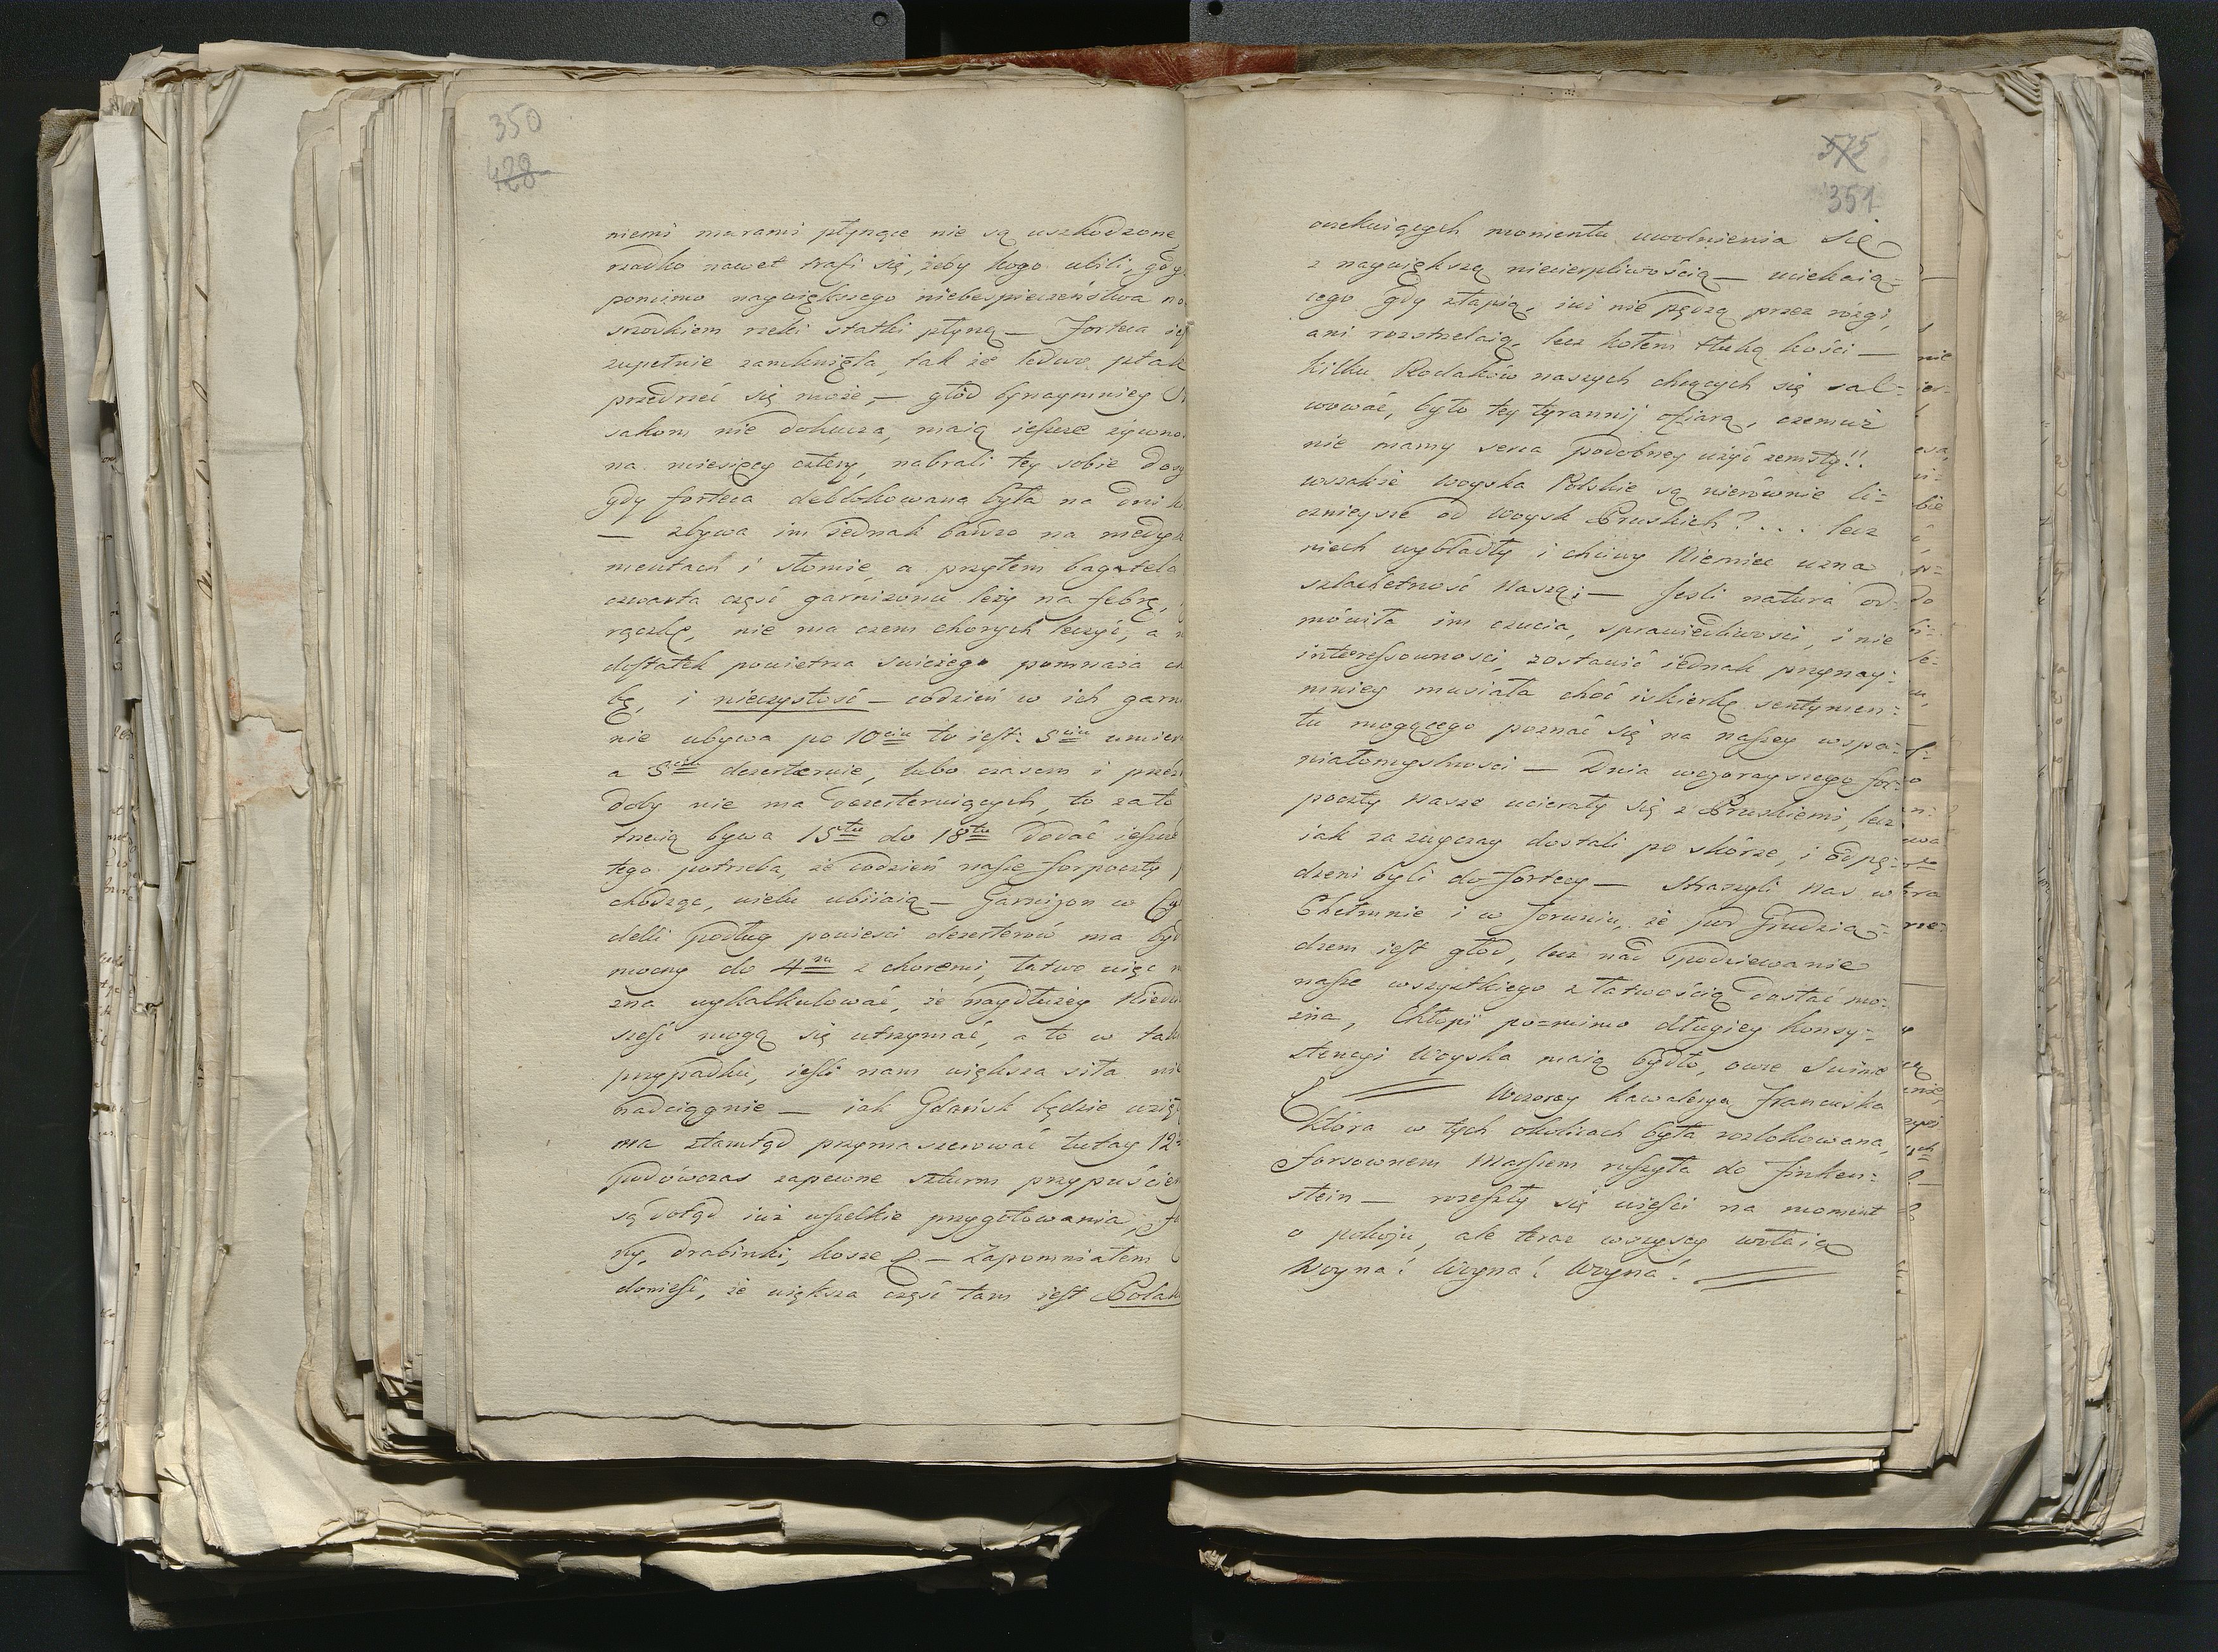 350
428
niemi murami płynące nie są uszkodzone
rzadko nawet trafi się, żeby kogo ubili, gdy
pomimo naywiększego niebespieczeństwa
srzodkiem rzeki statki płyną — Forteca
zupełnie zamknięta, tak że ledwo ptak
przedrzeć się może, — głód bynaymniey
sakom nie dokucza, maią ieszcze żywno
na miesięcy cztery, nabrali tey sobie dosy
gdy forteca deblokowaną była na dni
— zbywa im iednak bardzo na medyka
mentach i słomie, a przytem bagatela
czwarta część garnizonu leży na febrę,
rączkę, nie ma czem chorych leczyć, a
dostatek powietrza swieżego pomnaża
bę, i nieczystość — codzień w ich garni
nie ubywa po 10ciu to iest: 5ciu umier
a 5ciu dezerteruie, lubo czasem i
doby nie ma dezerteruiących, to zato
trzecią bywa 15stu do 18stu Dodać ieszcze
tego potrzeba, że codzień nasze forpoczty
chodząc, wielu ubiiaią — Garnizon w Cy
delli podług powieści dezerterów ma być
mocny do 4m z choremi, łatwo więc
zna wykalkulować, że naydłużey Niedziel
sześć mogą się utrzymać, a to w taki
przypadku, ieśli nam większa siła nie
nadciągnie — iak Gdańsk będzie wzię
ma ztamtąd przymaszerować tutay 12
podówczas zapewne szturm przypuściem
są dotąd iuż wszelkie przygotowania,
ny, drabinki, kosze & — Zapomniałem
donieść, że większa część tam iest Polak
575
351
oczekuiących momentu uwolnienia się
z naywiększą niecierpliwością — uciekaią=
cego gdy złapią, iuż nie pędzą przez rózgi,
ani rozstrzelaią, lecz kołem tłuką kości —
kilku Rodaków naszych chcących się sal=
wować, było tey tyrannij ofiarą, czemuż
nie mamy serca podobney użyć zemsty!!
wszakże woyska Polskie są nierównie li=
cznieysze od Woysk Pruskich? ... lecz
niech wybladły i chciwy Niemiec uzna
szlachetność Naszą; — Jeśli natura od=
mówiła im czucia, sprawiedliwości, i nie
interessowności, zostawić iednak przynay=
mniey musiała choć iskierkę sentymen=
tu mogącego poznać się na naszey wspa=
niałomyslności — Dnia wczorayszego for=
poczty Nasze ucierały się z Pruskiemi, lecz
iak zazwyczay dostali po skórze, i odpę=
dzeni byli do fortecy — Straszyli Nas w
Chełmnie i w Toruniu, że pod Grudzią=
dzem iest głód, lecz nad spodziewanie
nasze wszystkiego z łatwością dostać mo=
żna, Chłopi pomimo długiey konsy=
stencyi Woyska maią bydło, owce Swinie
& == Wczoray kawalerya Francuska
która w tych okolicach była rozlokowana,
forsownem Marszem ruszyła do Finken=
stein — rozeszły się wieści na moment
o pokoju, ale teraz wszyscy wołaią
Woyna! Woyna! Woyna! ==